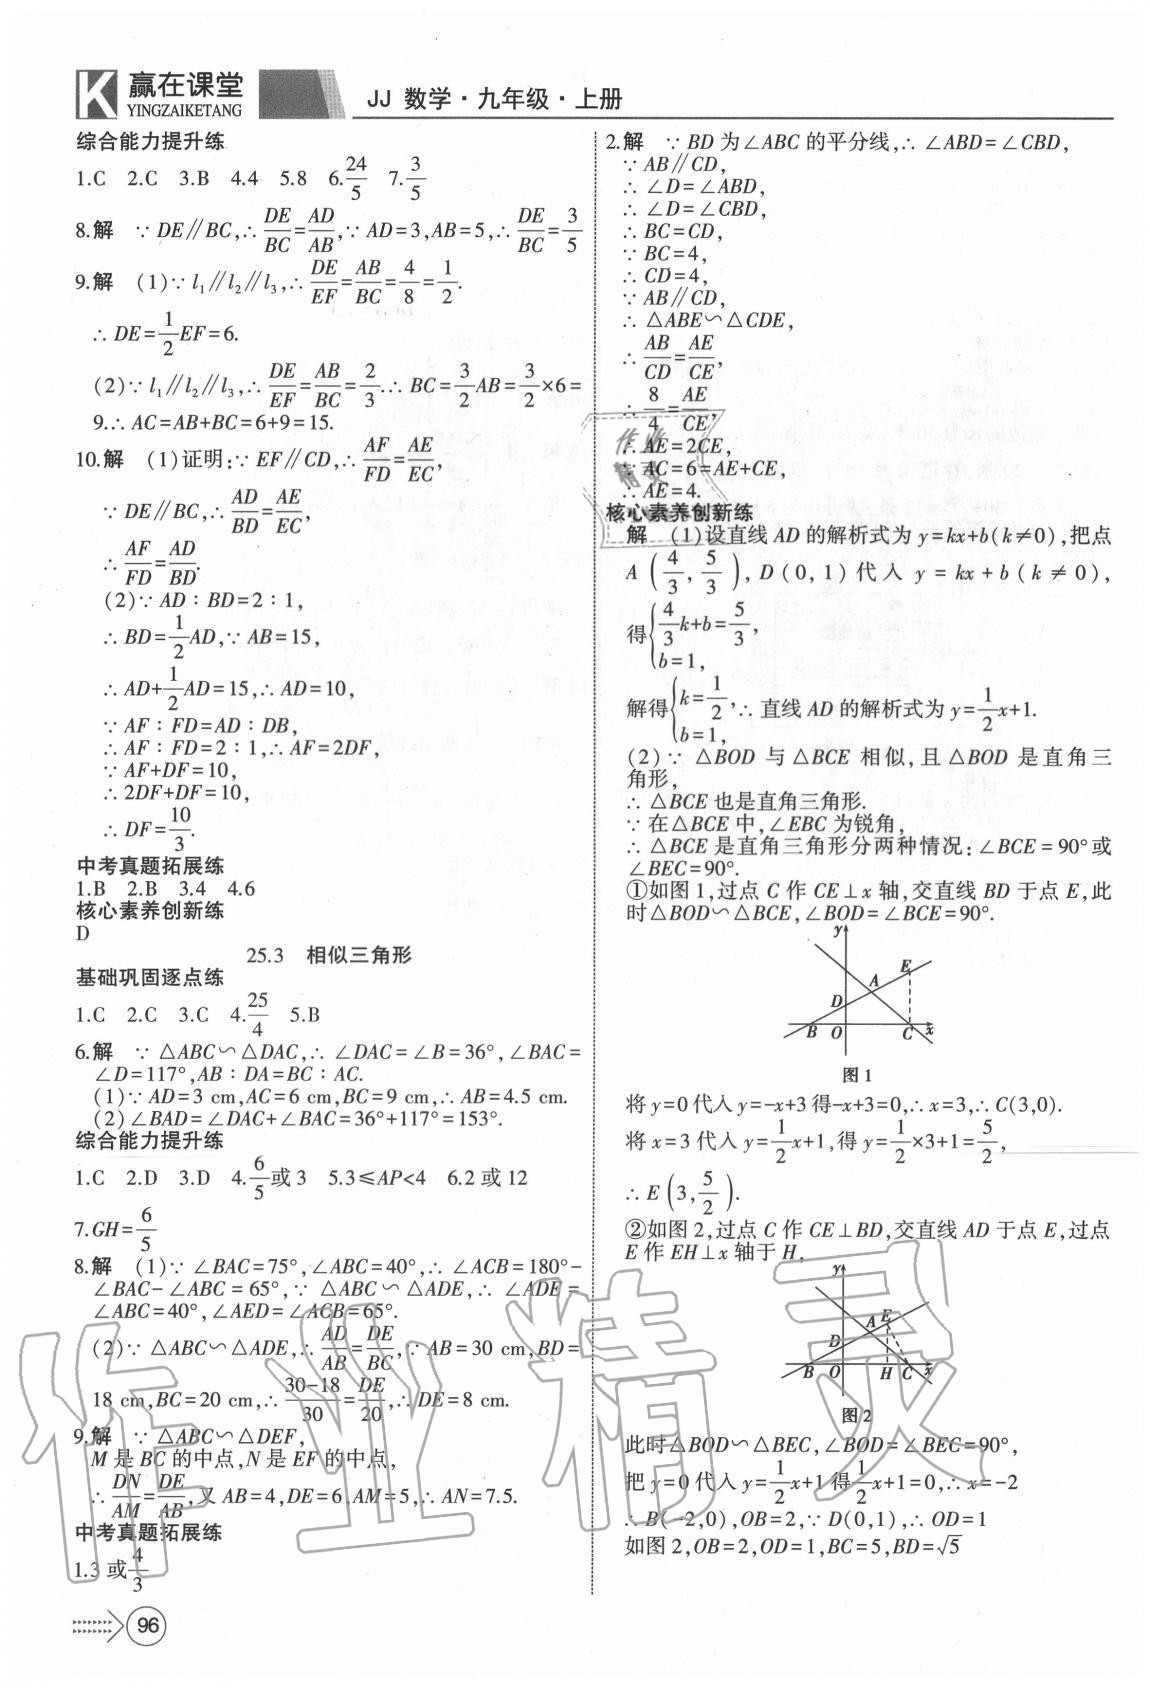 K 赢在课堂
YINGZAIKETANG
JJ 数学·九年级·上册
综合能力提升练
1.C 2.C 3.B 4.4 5.8 6.24/5 7.3/5
8.解 ∵DE∥BC,∴DE/BC=AD/AB,∵AD=3,AB=5,∴DE/BC=3/5
9.解 (1)∵l₁∥l₂∥l₃,∴DE/EF=AB/BC=4/8=1/2.
∴DE=1/2EF=6.
(2)∵l₁∥l₂∥l₃,∴DE/EF=AB/BC=2/3.∴BC=3/2AB=3/2×6=
9.∴AC=AB+BC=6+9=15.
10.解 (1)证明:∵EF∥CD,∴AF/FD=AE/EC,
∵DE∥BC,∴AD/BD=AE/EC,
∴AF/FD=AD/BD.
(2)∵AD∶BD=2∶1,
∴BD=1/2AD,∵AB=15,
∴AD+1/2AD=15,∴AD=10,
∵AF∶FD=AD∶DB,
∴AF∶FD=2∶1,∴AF=2DF,
∵AF+DF=10,
∴2DF+DF=10,
∴DF=10/3.
中考真题拓展练
1.B 2.B 3.4 4.6
核心素养创新练
D
25.3 相似三角形
基础巩固逐点练
1.C 2.C 3.C 4.25/4 5.B
6.解 ∵△ABC∽△DAC,∴∠DAC=∠B=36°,∠BAC=
∠D=117°,AB∶DA=BC∶AC.
(1)∵AD=3 cm,AC=6 cm,BC=9 cm,∴AB=4.5 cm.
(2)∠BAD=∠DAC+∠BAC=36°+117°=153°.
综合能力提升练
1.C 2.D 3.D 4.6/5或3 5.3≤AP<4 6.2或12
7.GH=6/5
8.解 (1)∵∠BAC=75°,∠ABC=40°,∴∠ACB=180°-
∠BAC-∠ABC=65°,∵△ABC∽△ADE,∴∠ADE=
∠ABC=40°,∠AED=∠ACB=65°.
(2)∵△ABC∽△ADE,∴AD/AB=DE/BC,∵AB=30 cm,BD=
18 cm,BC=20 cm,∴30-18/30=DE/20,∴DE=8 cm.
9.解 ∵△ABC∽△DEF,
M是BC的中点,N是EF的中点,
∴DN/AM=DE/AB,又AB=4,DE=6,AM=5,∴AN=7.5.
中考真题拓展练
1.3或4/3
96
2.解 ∵BD为∠ABC的平分线,∴∠ABD=∠CBD,
∵AB∥CD,
∴∠D=∠ABD,
∴∠D=∠CBD,
∴BC=CD,
∵BC=4,
∴CD=4,
∵AB∥CD,
∴△ABE∽△CDE,
∴AB/CD=AE/CE,
∴8/4=AE/CE,
∴AE=2CE,
∵AC=6=AE+CE,
∴AE=4.
核心素养创新练
解 (1)设直线AD的解析式为y=kx+b(k≠0),把点
A(4/3,5/3),D(0,1)代入y=kx+b(k≠0),
得{4/3k+b=5/3,
b=1,
解得{k=1/2,∴直线AD的解析式为y=1/2x+1.
b=1,
(2)∵△BOD与△BCE相似,且△BOD是直角三
角形,
∴△BCE也是直角三角形.
∵在△BCE中,∠EBC为锐角,
∴△BCE是直角三角形分两种情况:∠BCE=90°或
∠BEC=90°.
①如图1,过点C作CE⊥x轴,交直线BD于点E,此
时△BOD∽△BCE,∠BOD=∠BCE=90°.
y
E
A
D
B O C x
图1
将y=0代入y=-x+3得-x+3=0,∴x=3,∴C(3,0).
将x=3代入y=1/2x+1,得y=1/2×3+1=5/2,
∴E(3,5/2).
②如图2,过点C作CE⊥BD,交直线AD于点E,过点
E作EH⊥x轴于H,
y
E
A
D
B O H C x
图2
此时△BOD∽△BEC,∠BOD=∠BEC=90°,
把y=0代入y=1/2x+1得1/2x+1=0,∴x=-2
∴B(-2,0),OB=2,∵D(0,1),∴OD=1
如图2,OB=2,OD=1,BC=5,BD=√5
作业精灵
作业精灵